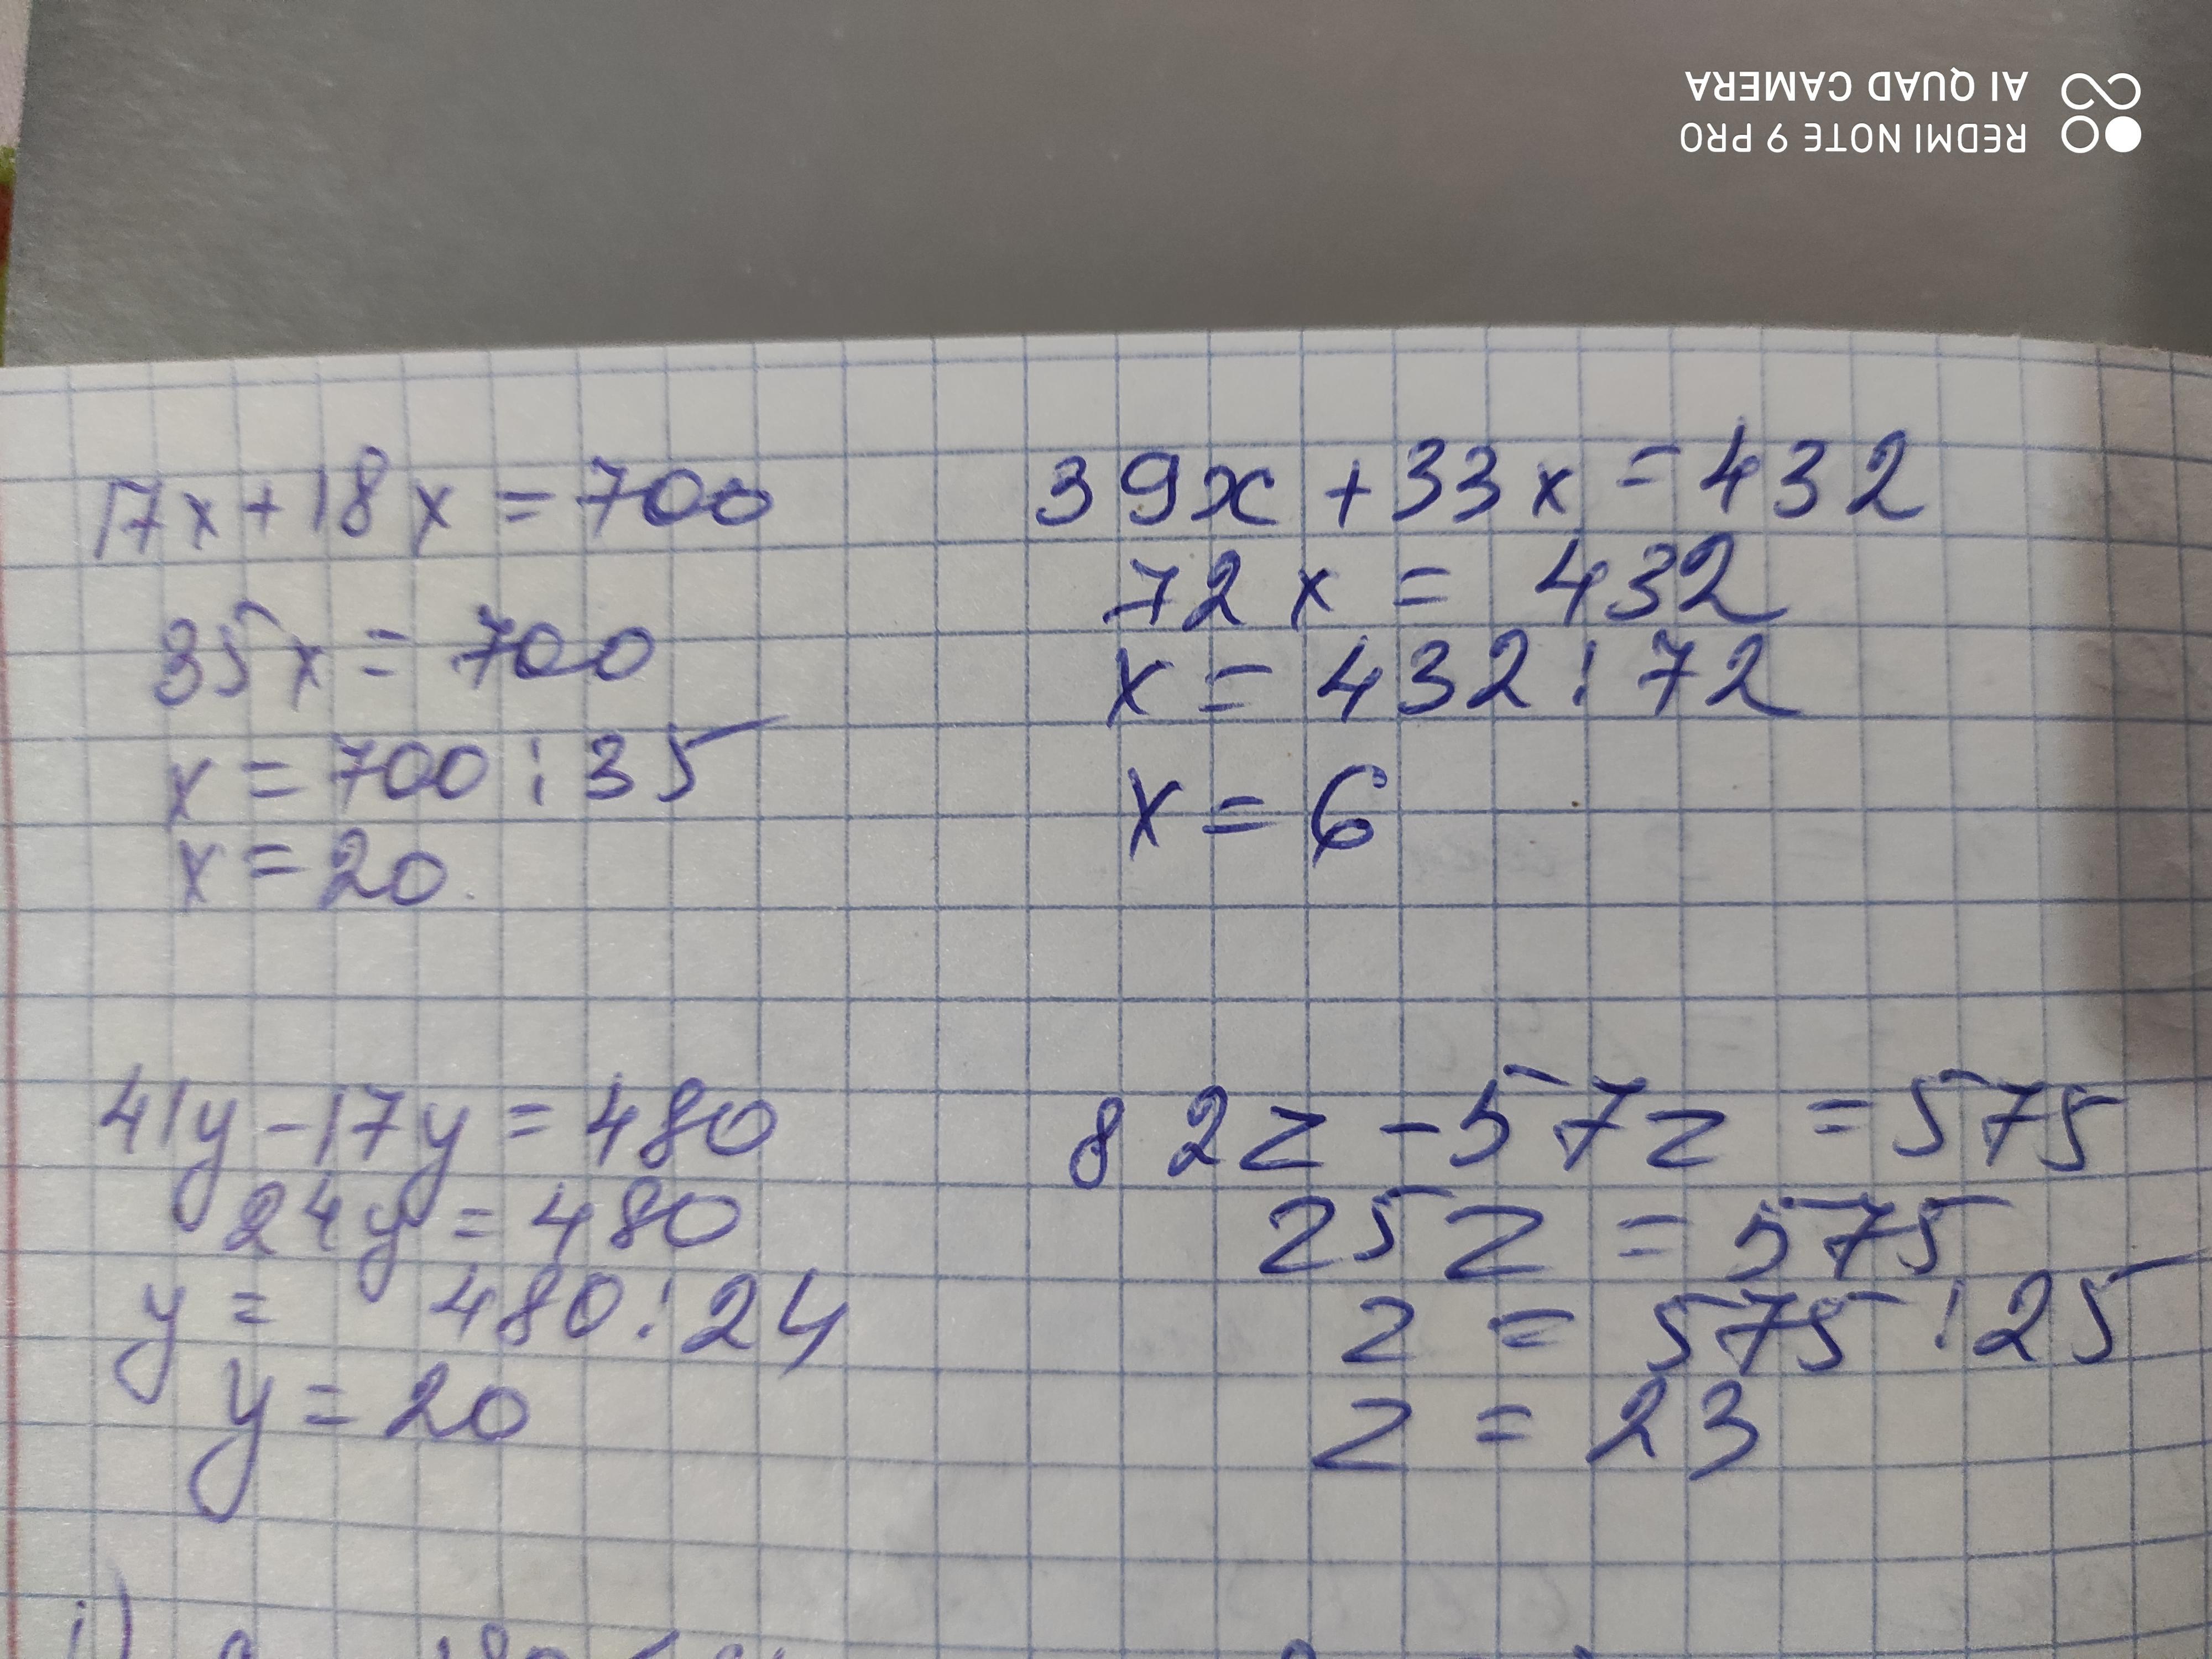 REDMI NOTE 9 PRO
AI QUAD CAMERA
17x+18x=700
35x=700
x=700:35
x=20
39x+33x=432
72x=432
x=432:72
x=6
41y-17y=480
24y=480
y=480:24
y=20
82z-57z=575
25z=575
z=575:25
z=23